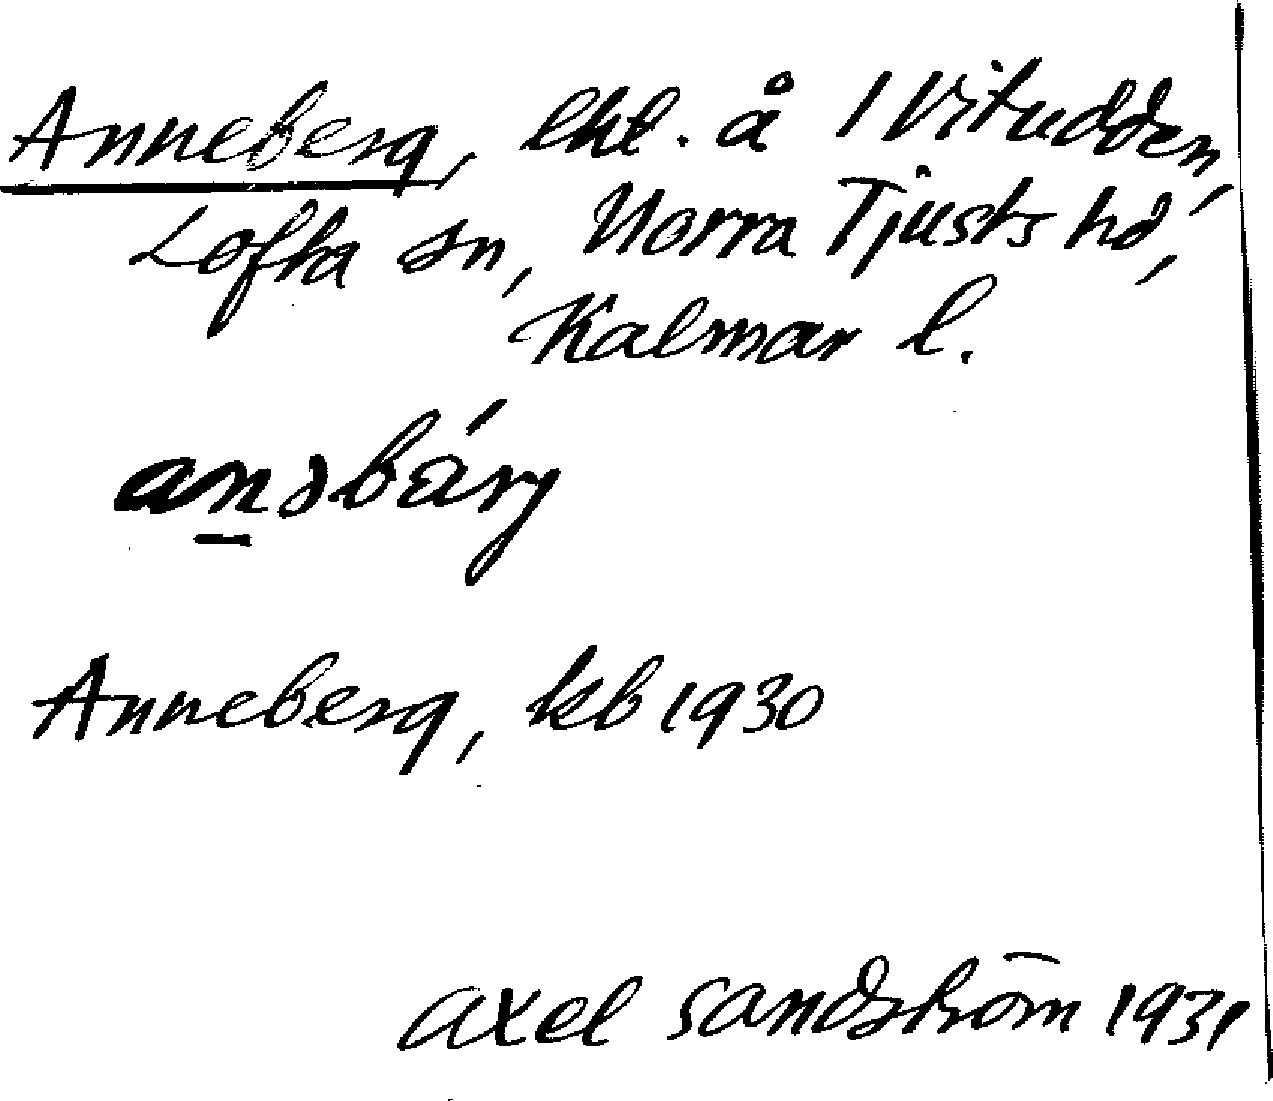 Anneberg, lht. å 1 Vitudden,
Lofta sn, Norra Tjusts hd,
Kalmar l.
anəbärj
Anneberg, kb 1930
Axel Sandström 1931